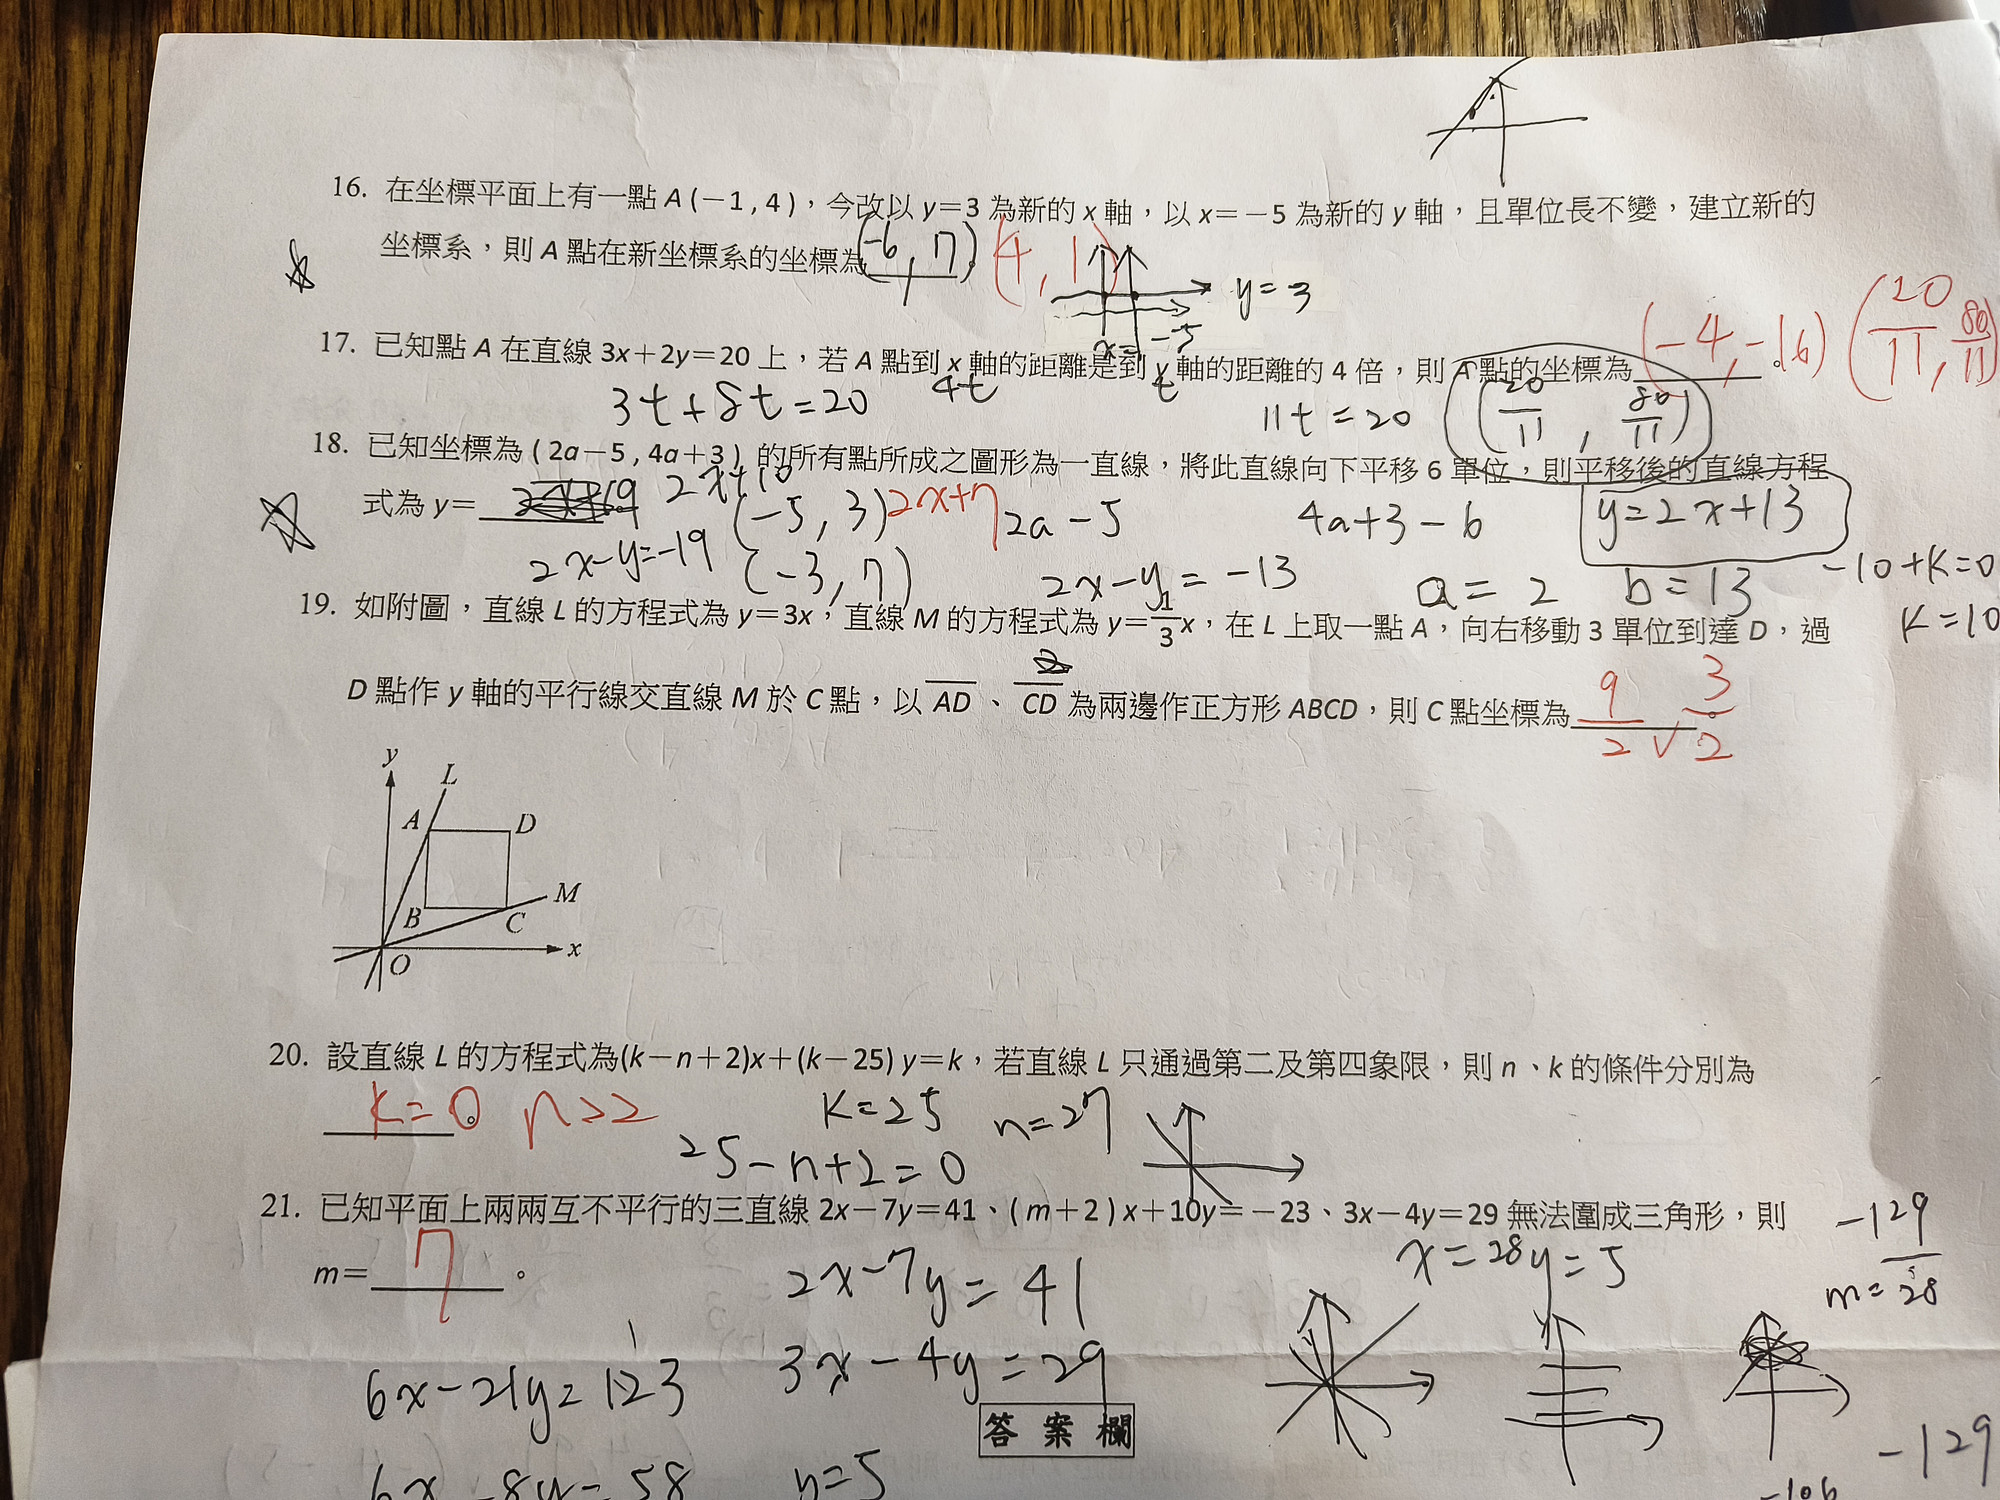 16. 在坐標平面上有一點 A(－1,4)，今改以 y＝3 為新的 x 軸，以 x＝－5 為新的 y 軸，且單位長不變，建立新的
坐標系，則 A 點在新坐標系的坐標為(-6, 7)。 (4, 1)
y = 3
x = -5
17. 已知點 A 在直線 3x＋2y＝20 上，若 A 點到 x 軸的距離是到 y 軸的距離的 4 倍，則 A 點的坐標為 (-4, -16) (20/11, 80/11)
3t+8t=20 4t t 11t=20 (20/11, 80/11)
18. 已知坐標為 (2a－5,4a＋3) 的所有點所成之圖形為一直線，將此直線向下平移 6 單位，則平移後的直線方程
式為 y＝ 2x+10 (-5, 3) 2x+7 2a-5 4a+3-6 y=2x+13
2x-y=-19 (-3, 7) 2x-y=-13 a=2 b=13 -10+k=0
k=10
19. 如附圖，直線 L 的方程式為 y＝3x，直線 M 的方程式為 y＝1/3x，在 L 上取一點 A，向右移動 3 單位到達 D，過
D 點作 y 軸的平行線交直線 M 於 C 點，以 AD、CD 為兩邊作正方形 ABCD，則 C 點坐標為 9/2 , 3/2 。
y
L
A D
M
B C
x
O
20. 設直線 L 的方程式為(k－n＋2)x＋(k－25) y＝k，若直線 L 只通過第二及第四象限，則 n、k 的條件分別為
k=0 。 n>2 k=25 n=27
25-n+2=0
21. 已知平面上兩兩互不平行的三直線 2x－7y＝41、(m＋2)x＋10y＝－23、3x－4y＝29 無法圍成三角形，則
m＝ 7 。
x=28 y=5
-129
m= 28
2x-7y=41
6x-21y=123 3x-4y=29
答案欄
6x-8y=58 y=5
-129
-106